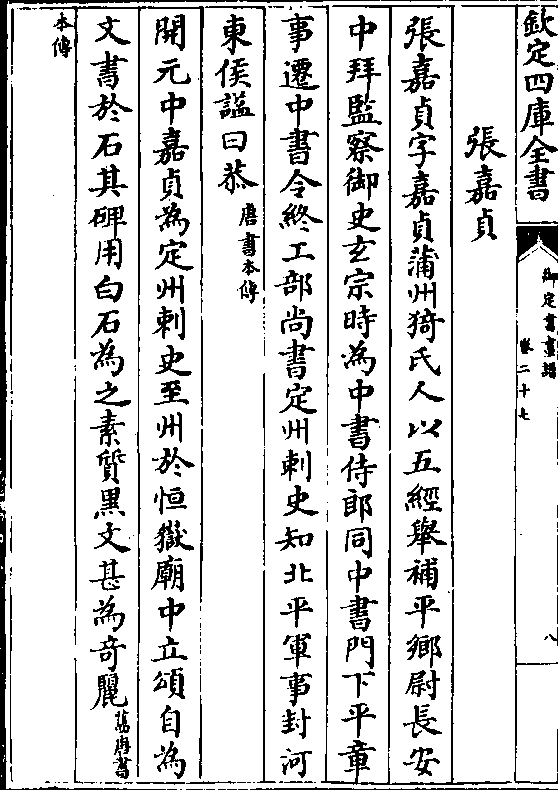 欽定四庫全書
御定書畫譜
卷二十七
八
張嘉貞
張嘉貞字嘉貞蒲州猗氏人以五經舉補平鄉尉長安
中拜監察御史玄宗時為中書侍郎同中書門下平章
事遷中書令終工部尚書定州刺史知北平軍事封河
東侯謚曰恭唐書本傳
開元中嘉貞為定州刺史至州於恒嶽廟中立頌自為
文書於石其碑用白石為之素質黑文甚為奇麗舊唐書
本傳